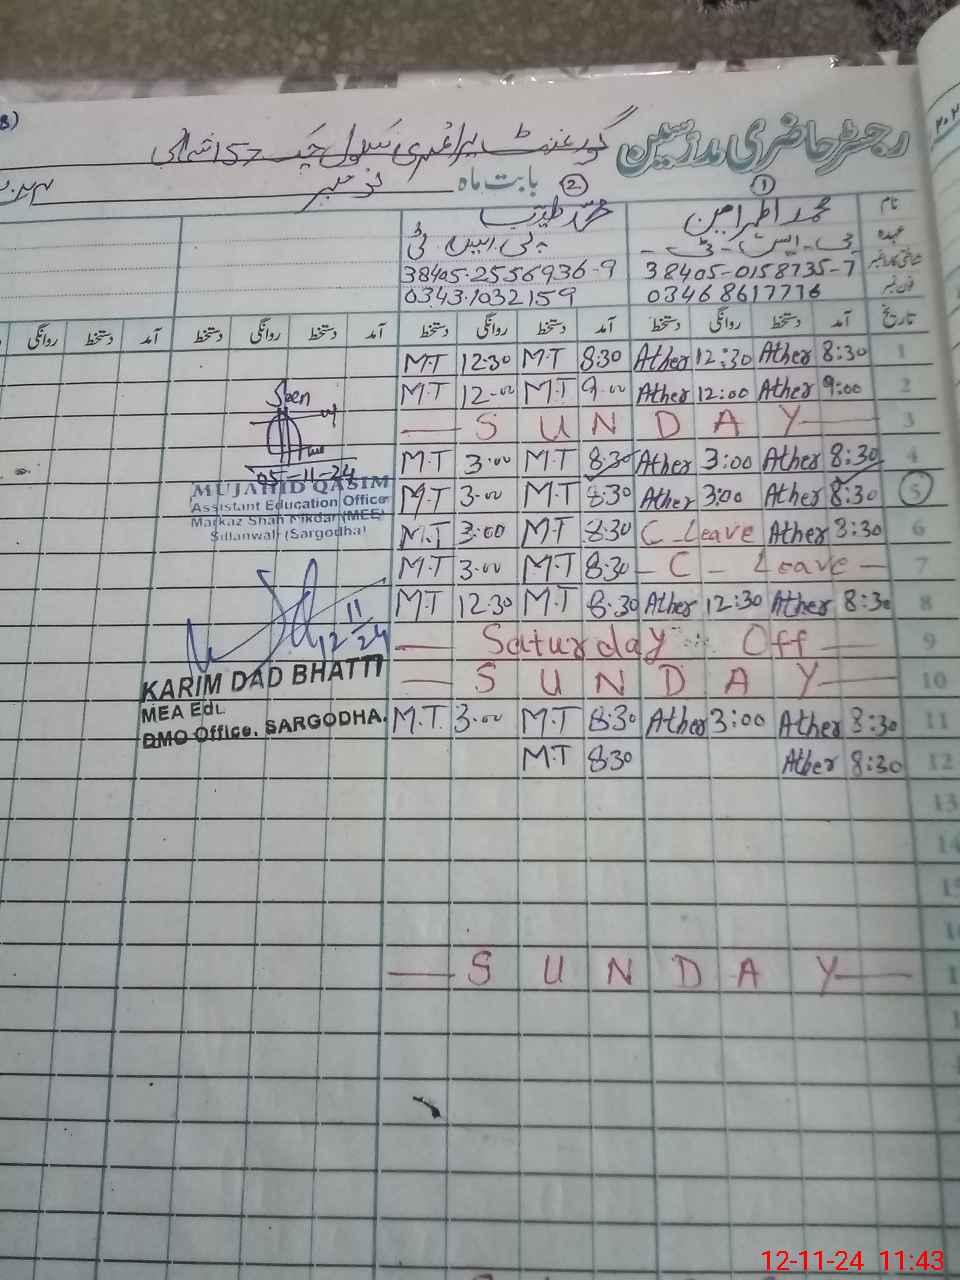 رجسٹر حاضری مدرسین گورنمنٹ پرائمری سکول چک 157 شمالی
بابت ماہ نومبر
① ②
نام محمد اطہر امین محمد طیب
عہدہ پی۔ایس۔ٹی۔ پی۔ایس ٹی
شناختی کارڈ نمبر 38405-0158735-7 38405-2556936-9
فون نمبر 03468617716 0343-1032159
تاریخ آمد دستخط روانگی دستخط آمد دستخط روانگی دستخط آمد دستخط روانگی دستخط آمد دستخط روانگی
M.T 12:30 M.T 8:30 Ather 12:30 Ather 8:30 1
M.T 12-00 M.T 9.00 Ather 12:00 Ather 9:00 2
S U N D A Y 3
M.T 3.00 M.T 8:30 Ather 3:00 Ather 8:30 4
M.T 3.00 M.T 8:30 Ather 3:00 Ather 8:30 5
M.T 3.00 M.T 8:30 C Leave Ather 8:30 6
M.T 3.00 M.T 8:30 C - Leave 7
M.T 12.30 M.T 8.30 Ather 12:30 Ather 8:30 8
Saturday Off 9
S U N D A Y 10
M.T. 3.00 M.T 8:30 Ather 3:00 Ather 8:30 11
M.T 8:30 Ather 8:30 12
13
14
15
S U N D A Y
Seen
05-11-24
MUJAHID QASIM
Assistant Education Officer
Markaz Shah Nikdar (MEE)
Sillanwali (Sargodha)
11
12-24
KARIM DAD BHATTI
MEA Edu.
DMO Office, SARGODHA.
12-11-24 11:43